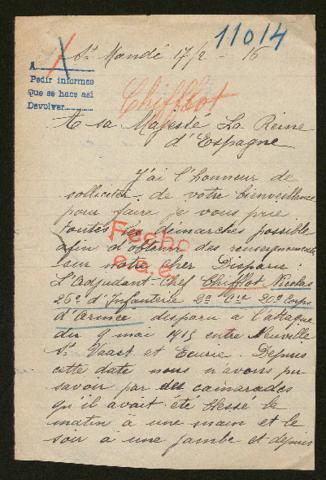 11014
St Mandé 17/2 - 16
A
Pedir informes
Que se hace asi
Devolver
Chifflot
A sa Majesté La Reine
d'Espagne
J'ai l'honneur de
solliciter de votre bienveillance
pour faire je vous prie
toutes les démarches possible
afin d'obtenir des renseignements
sur notre cher Disparu
Fecho
L'Adjudant-Chef Chifflot Nicolas
26e d'Infanterie 2e Cie 20e Corps
d'Armée disparu à l'attaque
du 9 mai 1915 entre Neuville
St Vaast et Ecurie. Depuis
cette date nous n'avons pu
savoir par des camarades
qu'il avait été blessé le
matin à une main et le
soir à une jambe et depuis